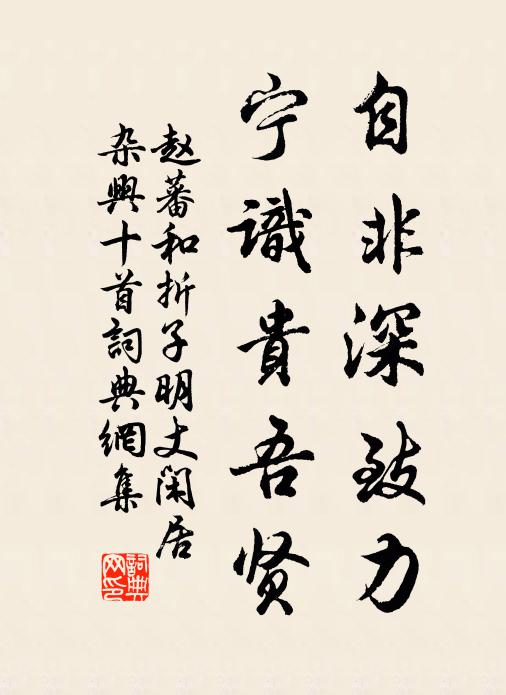 自非深致力
宁識貴吾贤
赵蕃和折子明丈闲居
杂興十首詞典網集
詞典网印